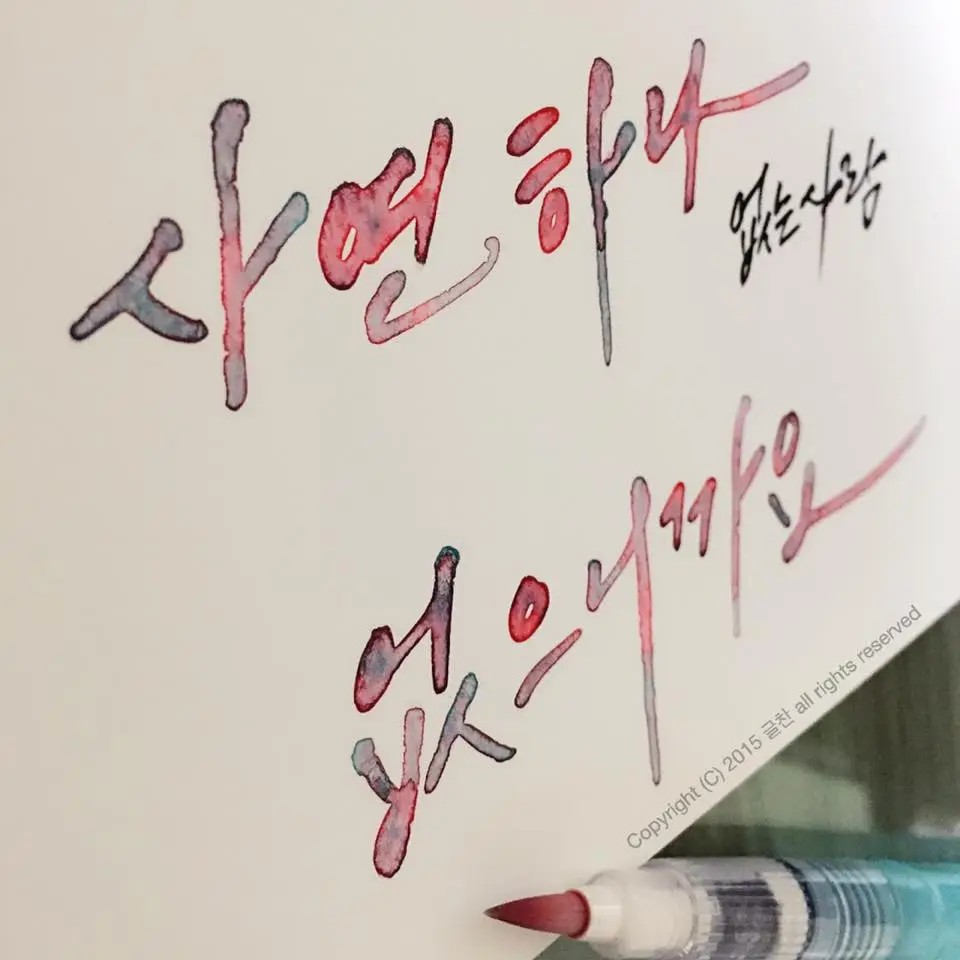 사연 하나
없는 사람
없으니까요
Copyright (C) 2015 글찬 all rights reserved